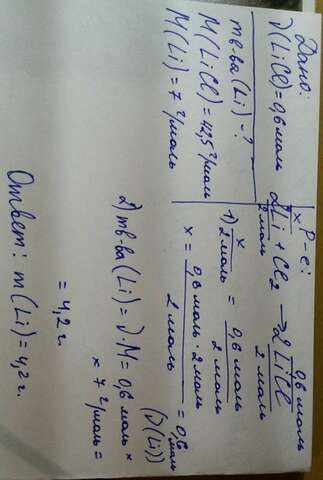 Дано:
ν(LiCl)=0,6 моль
m в-ва (Li) - ?
M(LiCl)=42,5 г/моль
M(Li)=7 г/моль
Р-е:
x 0,6 моль
2Li + Cl₂ → 2LiCl
2 моль 2 моль
1) x / 2 моль = 0,6 моль / 2 моль
x = 0,6 моль · 2 моль / 2 моль = 0,6 моль
(ν(Li))
2) m в-ва (Li) = ν · M = 0,6 моль ×
× 7 г/моль =
= 4,2 г.
Ответ: m(Li)=4,2 г.